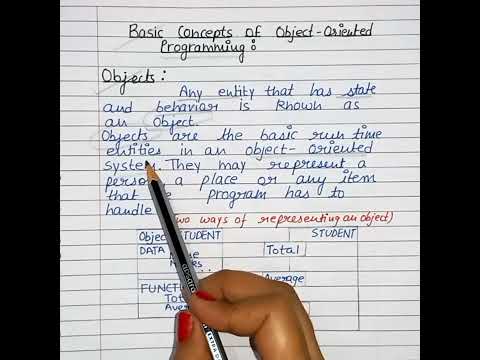 Basic Concepts of Object-Oriented
Programming:
Objects:
Any entity that has state
and behavior is known as
an Object.
Objects are the basic run time
entities in an object-oriented
system. They may represent a
person a place or any item
that program has to
handle
two ways of representing an object)
Object STUDENT
STUDENT
DATA
Total
Average
FUNCTI
Tot
Aver